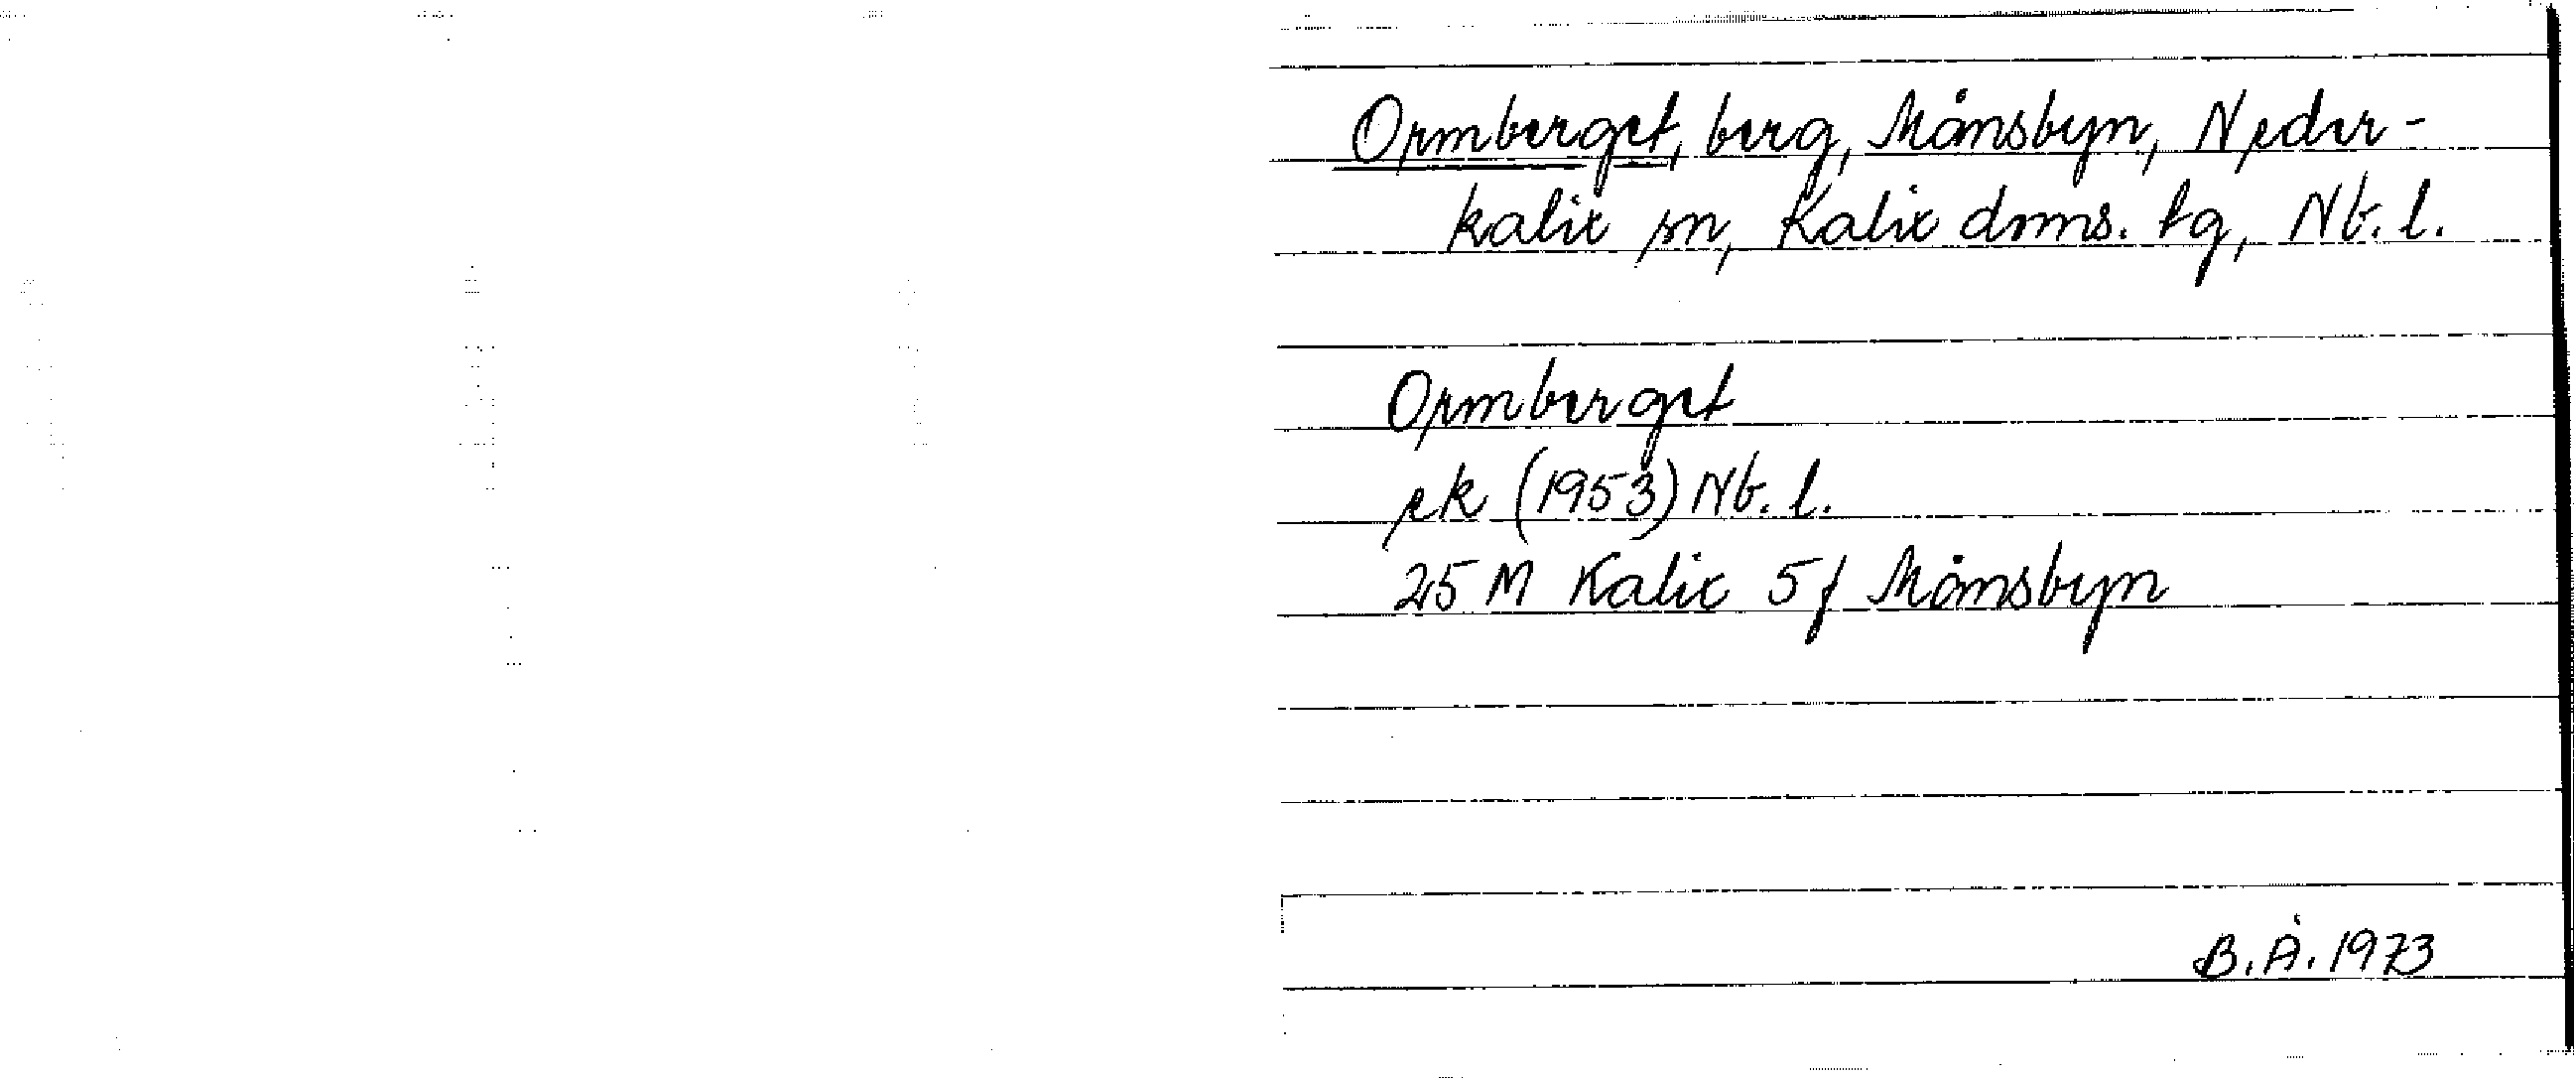 Ormberget, berg, Månsbyn, Neder-
kalix sn, Kalix doms. tg, Nb. l.
Ormberget
ek (1953) Nb. l.
25 M Kalix 5 f Månsbyn
B.Å. 1973